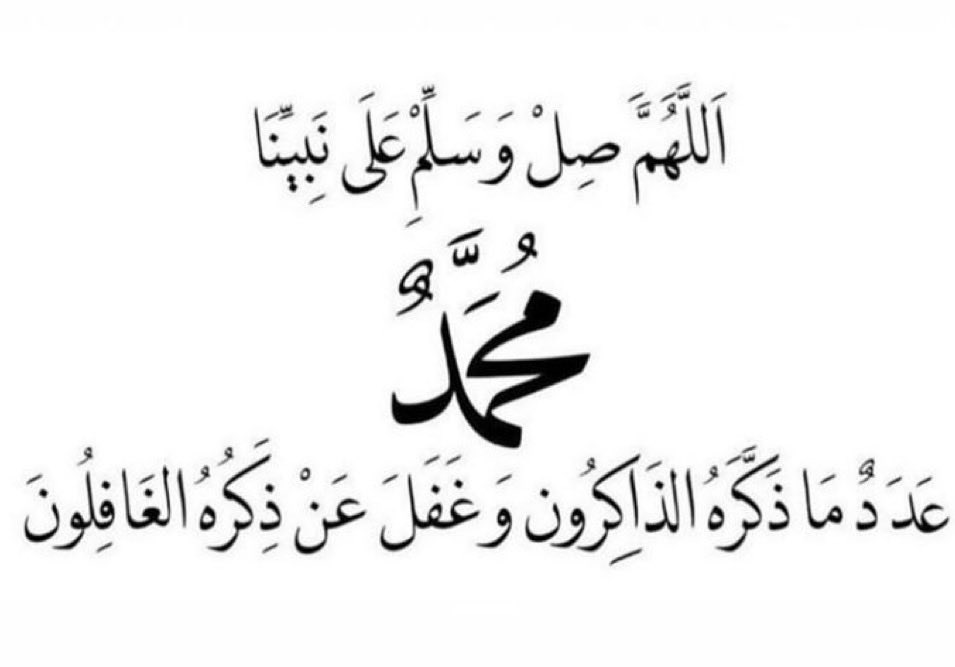 اَللَّهُمَّ صِلْ وَ سَلِّمْ عَلَى نَبِيِّنَا
مُحَمَّدٌ
عَدَدٌ مَا ذَكَّرَهُ الذَاكِرُون وَ غَفَلَ عَنْ ذِكْرُهُ الغَافِلُونَ